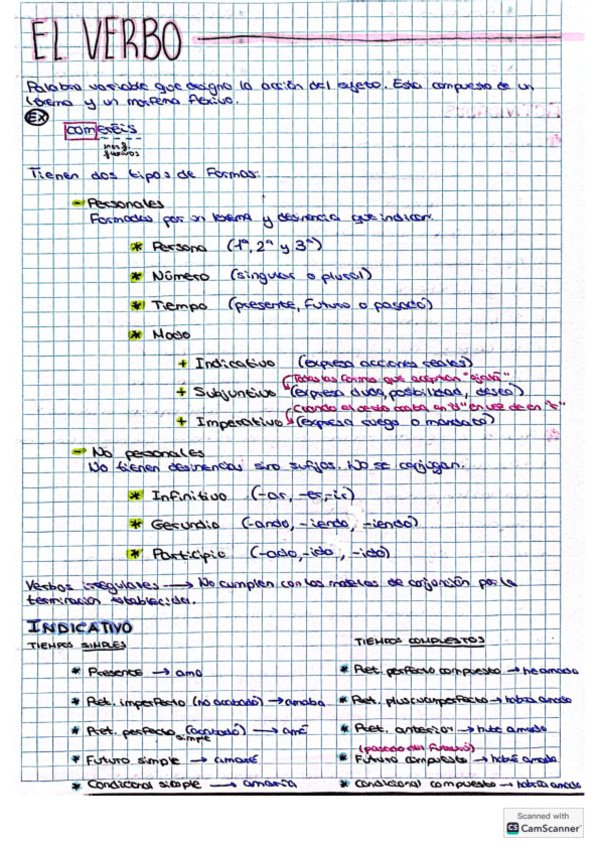 EL VERBO
Palabra variable que designa la acción del sujeto. Esta compuesta de un
lexema y un morfema flexivo.
EX
comeréis
morf.
flexivos
Tienen dos tipos de Formas:
- Personales
Formadas por un lexema y desinencia que indican:
* Persona (1ª, 2ª y 3ª)
* Número (singular o plural)
* Tiempo (presente, futuro o pasado)
* Modo
+ Indicativo (expresa acciones reales)
Todas las formas que aceptan "ojalá"
+ Subjuntivo (expresa duda, posibilidad, deseo)
Cuando el verbo acaba en "d" en vez de en "r"
+ Imperativo (expresa ruego o mandato)
- No personales
No tienen desinencias sino sufijos. No se conjugan.
* Infinitivo (-ar, -er, -ir)
* Gerundio (-ando, -iendo, -iendo)
* Participio (-ado, -ido, -ido)
Verbos irregulares → No cumplen con los modelos de conjunción por la
terminación establecida.
INDICATIVO
TIEMPOS SIMPLES
* Presente → amo
* Pret. imperfecto (no acabado) → amaba
* Pret. perfecto simple (acabado) → amé
* Futuro simple → amaré
* Condicional simple → amaría
TIEMPOS COMPUESTOS
* Pret. perfecto compuesto → he amado
* Pret. pluscuamperfecto → había amado
* Pret. anterior → hube amado
(pasado del futuro)
* Futuro compuesto → habré amado
* Condicional compuesto → habría amado
Scanned with
CS CamScanner